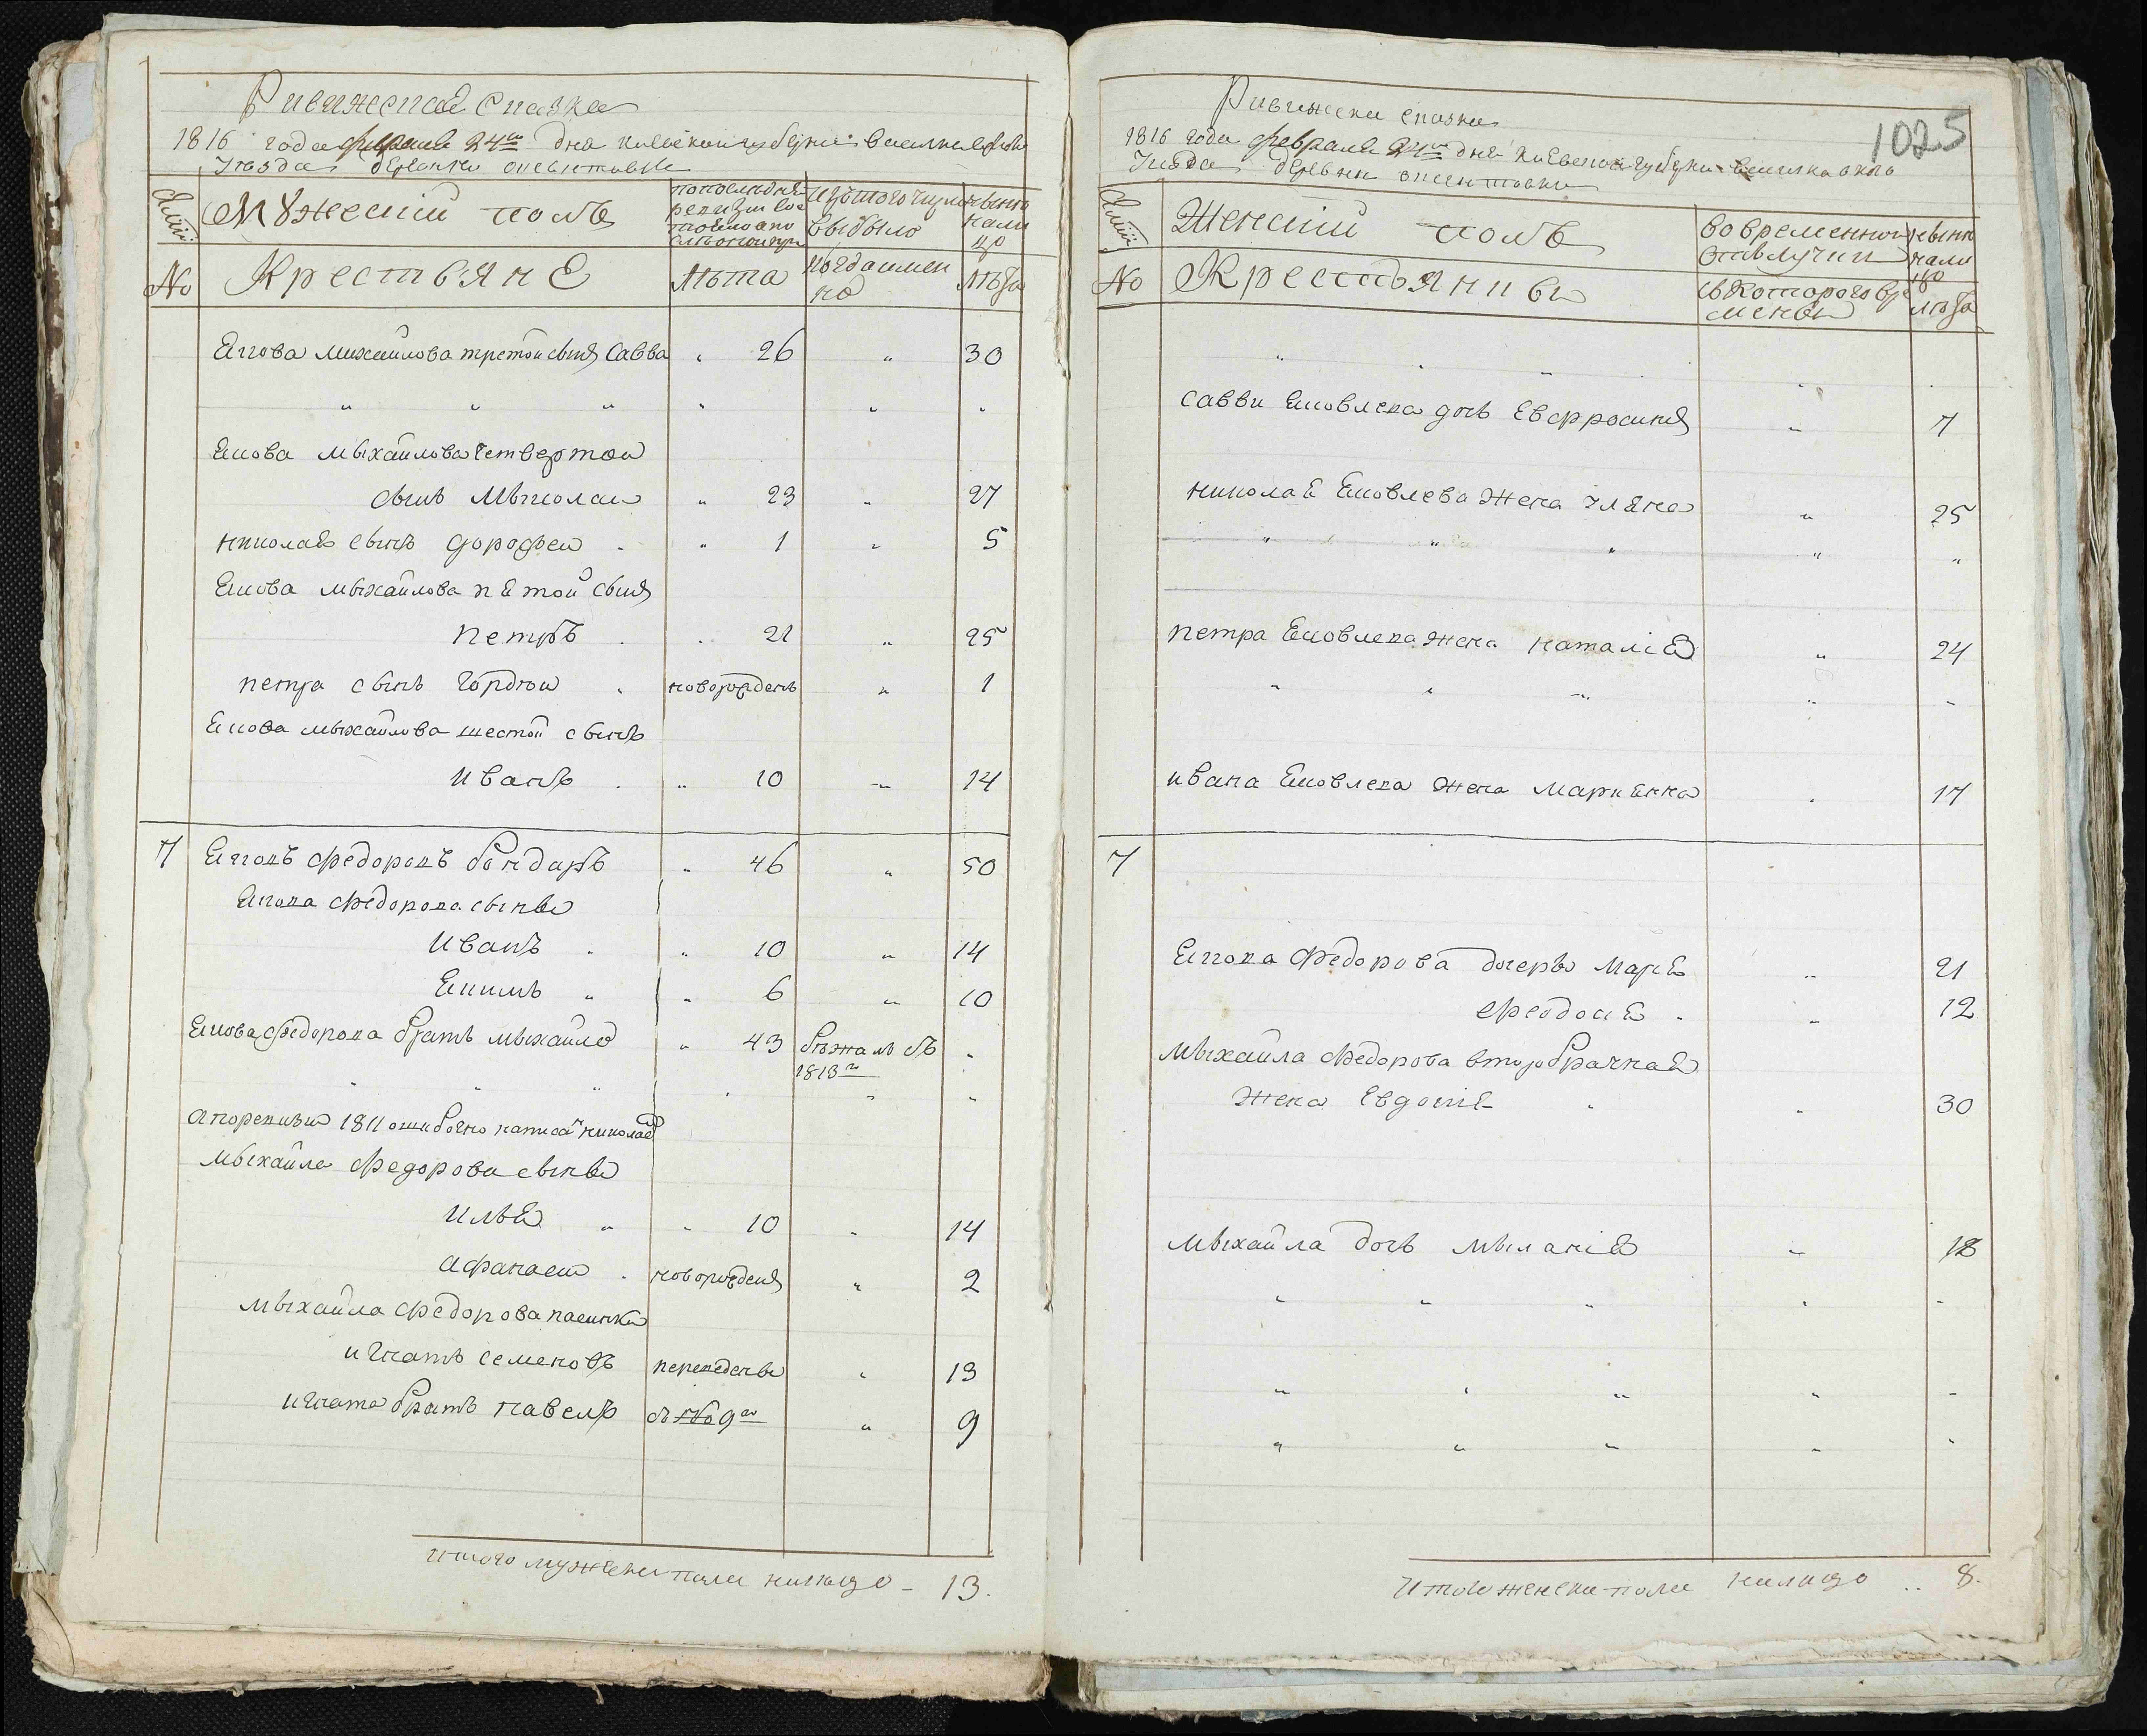 Ривижская сказка
1816 года февраля 24го дня киевской губернии василковского
Уезда деревни
Мужеский полъ
Изтого числа выбыло
ныне нали цо
No
Крестьяне
лѣта
когда имен но
лѣта
Якова михайлова третой сынъ Савва " 26 " 30
" " " " " "
Якова мыхайлова Четвертой
сынъ Мыколай " 23 " 27
николая сынъ дорофей . " 1 " 5
Якова мыхайлова пятой сынъ
петръ . " 21 " 25
петра сынъ Гордѣй . новорожденъ " 1
Якова мыхайлова шестой сынъ
иванъ . " 10 " 14
7 Яковъ федоровъ бондарь " 46 " 50
Якова федорова сыны
иванъ . " 10 " 14
Якимъ " " 6 " 10
Якова федорова братъ мыхайло " 43 бежалъ въ 1813го "
" " " " " "
а по ревизии 1811 ошибочно написанъ николай
мыхайла федорова сыны
илья " " 10 " 14
афанасий . новорожденъ " 2
мыхайла федорова пасинки
игнатъ семеновъ переведены " 13
игната братъ павелъ " 9
итого мужеска пола налицо - 13.
Ривижска сказка
1025
1816 года февраля 24го дня киевской губернии василковского
Уезда деревни
Женский полъ
во временной отлучки
ныне нали цо
No
Крестьянки
съ которого времены
лѣта
" " " " "
Савви Яковлева дочь Евфросиния " 7
николая Яковлева жена 25
" " " " "
петра Яковлева жена наталія " 24
" " " " "
ивана Яковлева жена марианна . 17
7
Якова федорова дочеры маря " 21
феодосия . " 12
мыхайла федорова второбрачная
жена Евдокия . " 30
мыхайла дочь мыланія " 18
" " " " "
" " " " "
" " " " "
Итого женска пола налицо .. 8.